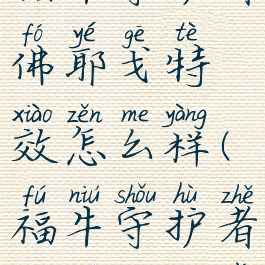 fó yé gē tè
佛耶戈特
xiào zěn me yàng
效怎么样(
fú niú shǒu hù zhě
福牛守护者